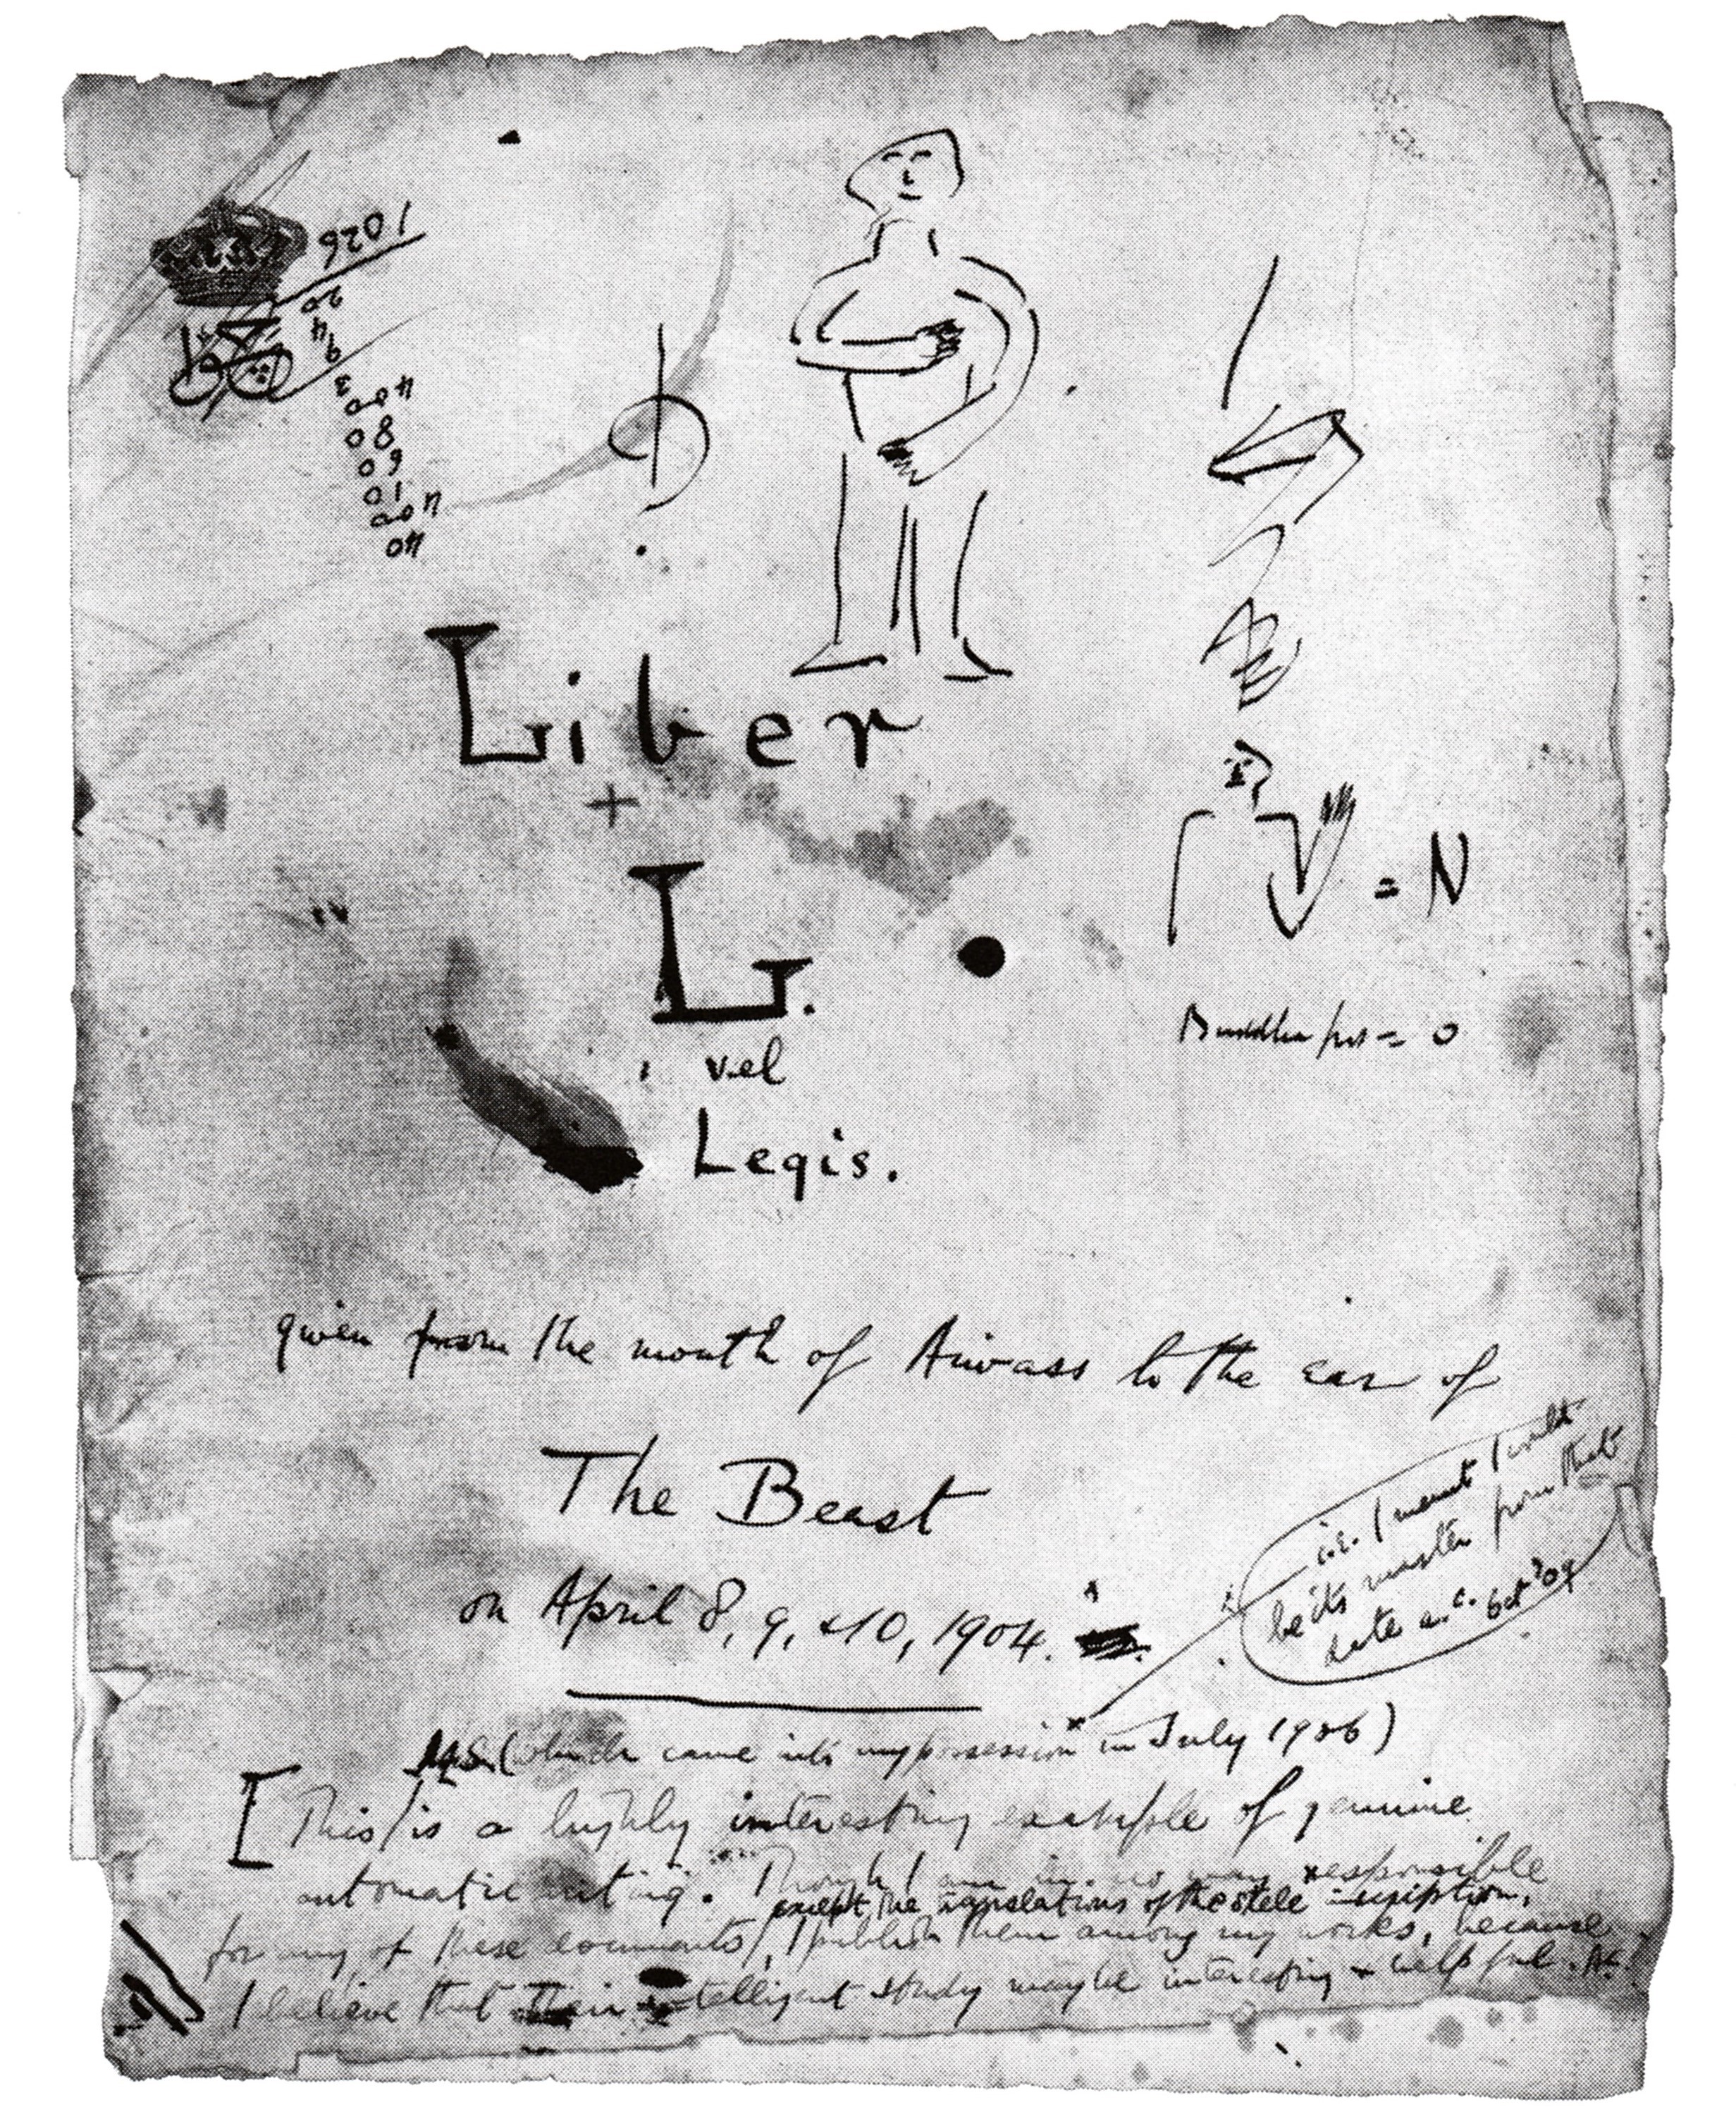 1026
20
94
3
400
80
09
10
400
40
Liber
+
L.
vel
Legis.
= N
Buddha = 0
given from the mouth of Aiwass to the ear of
The Beast
on April 8, 9, & 10, 1904.
i.e. I meant I would
be its master from that
date a.c. Oct '09
MS (which came into my possession in July 1906)
[This is a highly interesting example of genuine
automatic writing. Though I am in no way responsible
except the translations of the stele inscription,
for any of these documents, I publish them among my works, because
I believe that their intelligent study may be interesting & helpful. A.C.